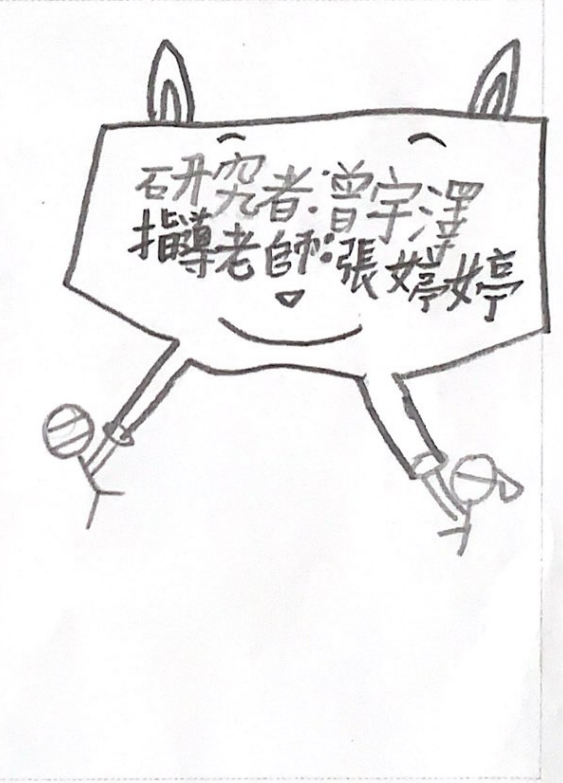 研究者:曾宇澤
指導老師:張婷婷